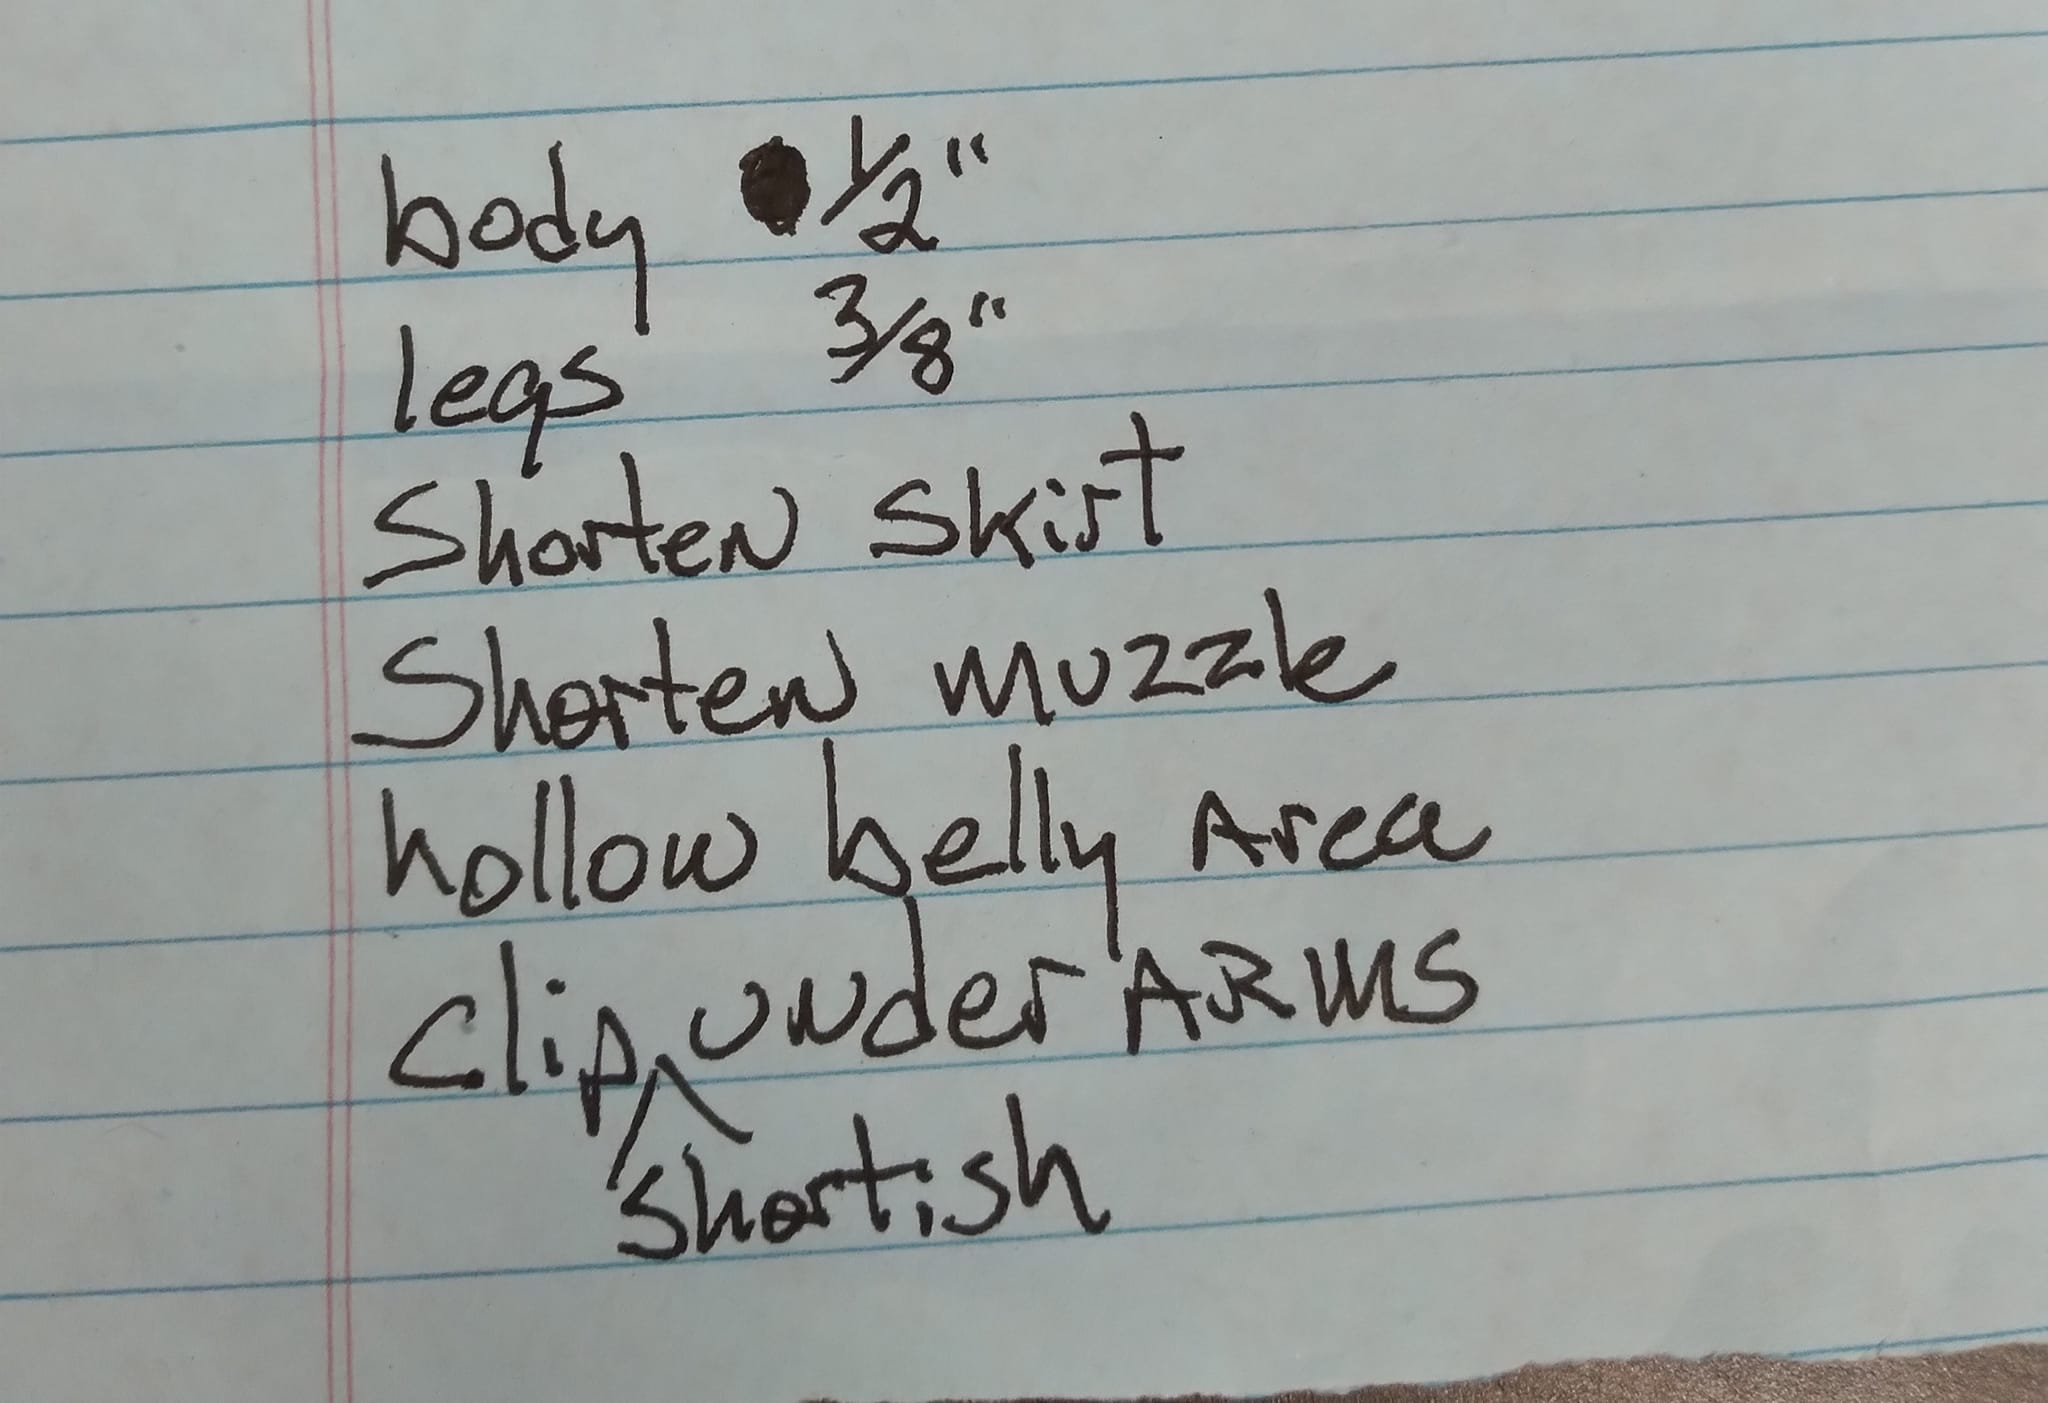 body 1/2"
legs 3/8"
Shorten skirt
Shorten muzzle
hollow belly Area
Clip under ARMS
shortish